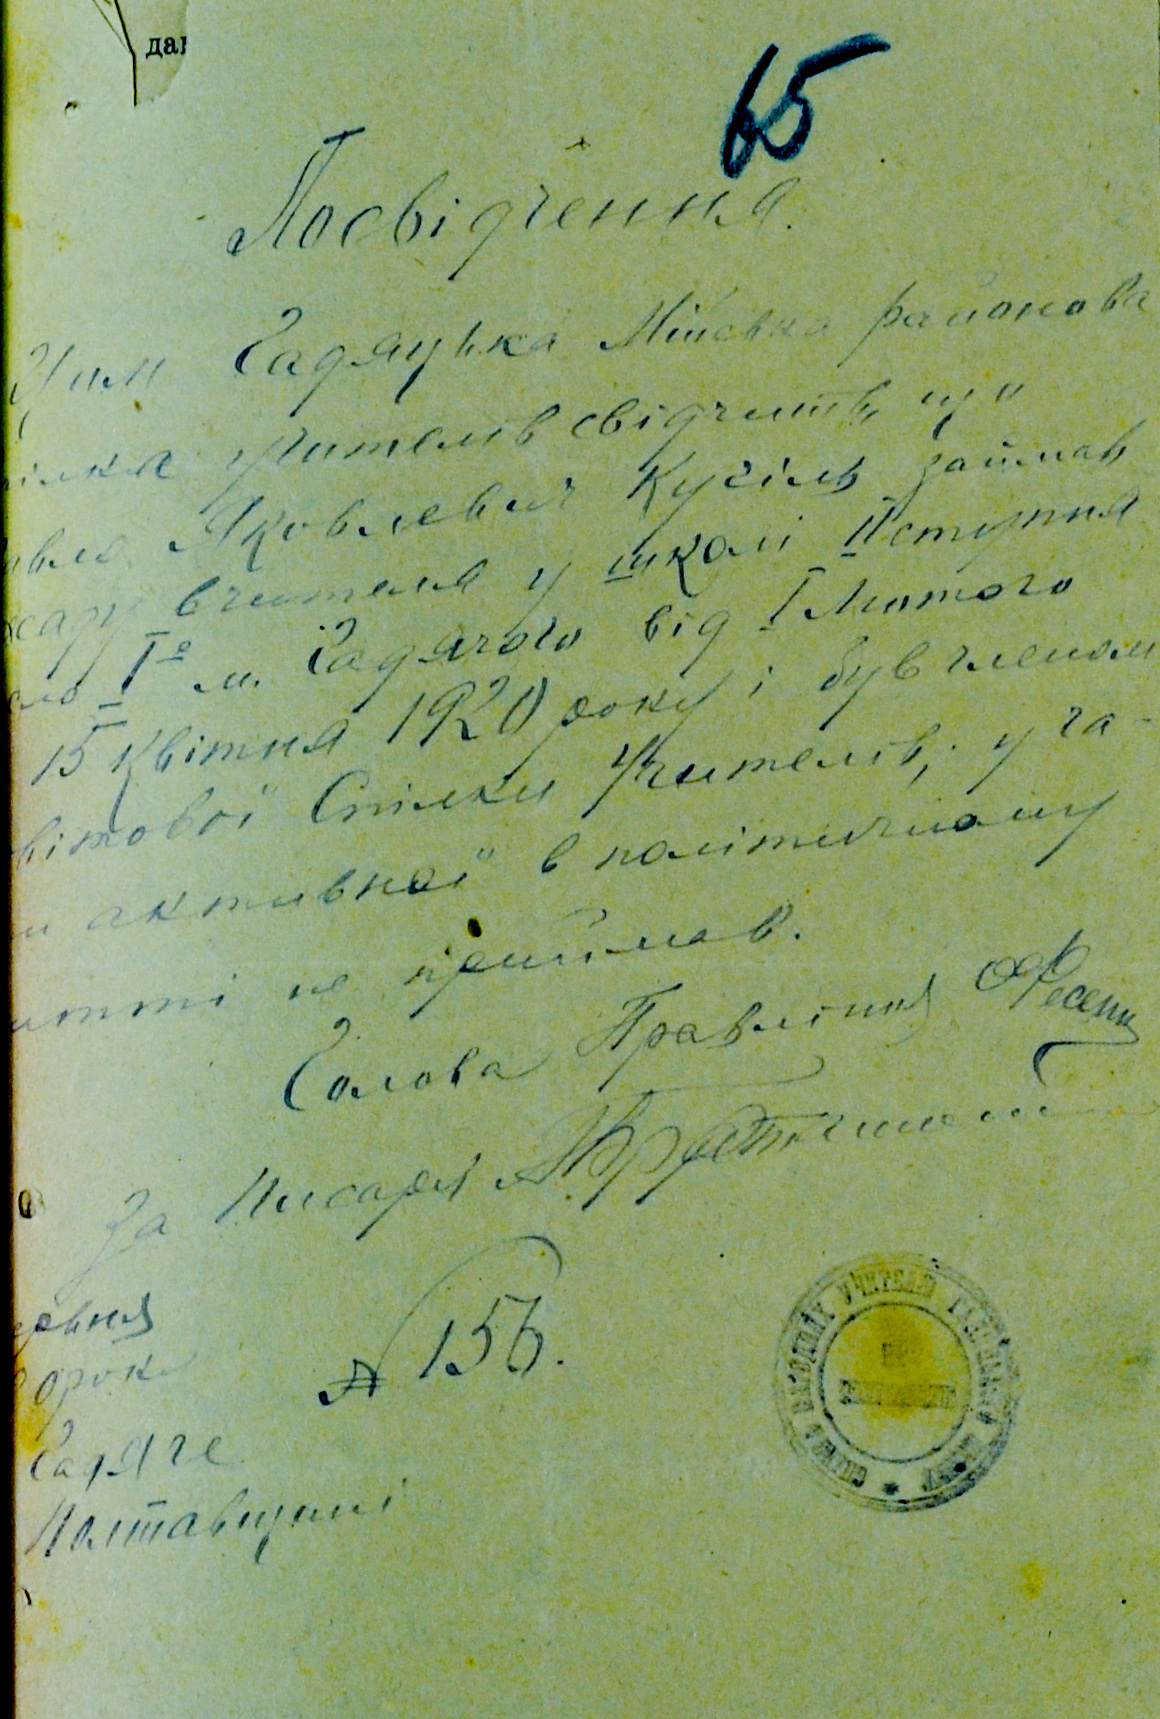 даг
65
Посвідчення.
Цим Гадяцька Мійська районова
ілка учителів свідчить, що
авло Яковлевич Кугіль займав
саду вчителя у школі II ступня
сло I м. Гадячого від I Лютого
15 Квітня 1920 року і був членом
вітової Спілки Учителів; уча-
и активної в політичному
итті не приймав.
Голова Правління
За Писаря
рвня
року
№ 156.
Гадяче
Полтавщині